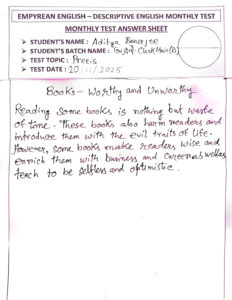 EMPYREAN ENGLISH – DESCRIPTIVE ENGLISH MONTHLY TEST
MONTHLY TEST ANSWER SHEET
➢ STUDENT'S NAME : Aditya Banerjee
➢ STUDENT'S BATCH NAME : Clerk Main
➢ TEST TOPIC : Precis
➢ TEST DATE : 20/11/2025
Books – Worthy and Unworthy
Reading some books is nothing but waste
of time. These books also harm readers and
introduce them with the evil traits of life.
However, some books make readers wise and
enrich them with business and careers as well as
teach to be selfless and optimistic.